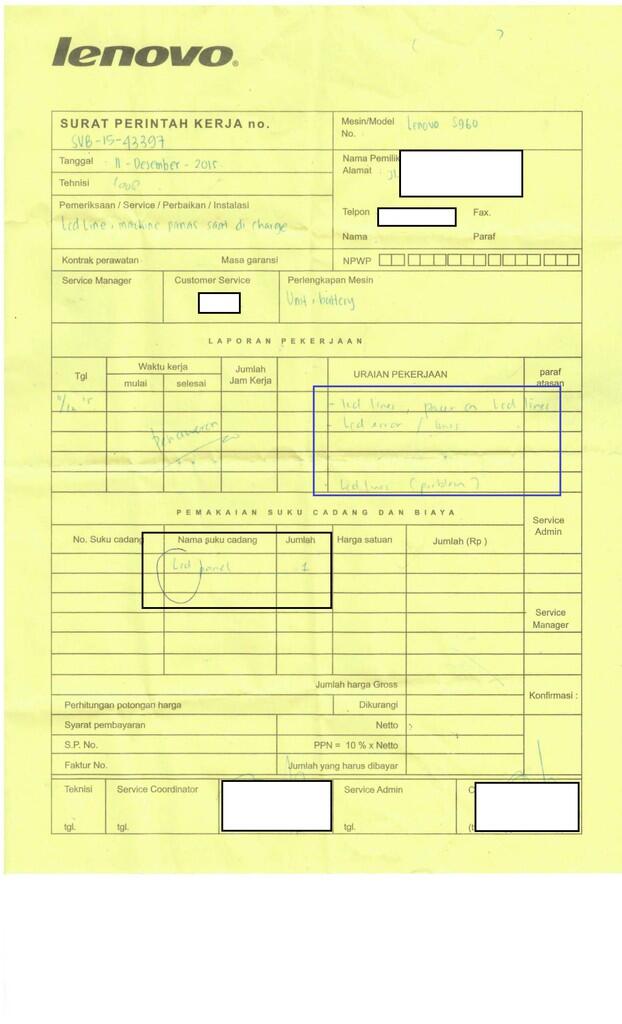 lenovo®
SURAT PERINTAH KERJA no.
SVB-15-43397
Mesin/Model
No.
Lenovo S960
Tanggal : 11 - Desember - 2015
Tehnisi :
Nama Pemilik
Alamat : Jl.
Pemeriksaan / Service / Perbaikan / Instalasi
Lcd Line, machine panas saat di charge
Telpon
Fax.
Nama
Paraf
Kontrak perawatan
Masa garansi
NPWP
Service Manager
Customer Service
Perlengkapan Mesin
Unit, battery
LAPORAN PEKERJAAN
Tgl
Waktu kerja
mulai
selesai
Jumlah
Jam Kerja
URAIAN PEKERJAAN
paraf
atasan
11/12 '15
- lcd lines, power on lcd lines
- Lcd error / lines
penawaran
- Lcd lines (problem)
PEMAKAIAN SUKU CADANG DAN BIAYA
Service
Admin
No. Suku cadang
Nama suku cadang
Jumlah
Harga satuan
Jumlah (Rp )
Lcd panel
1
Service
Manager
Jumlah harga Gross
Konfirmasi :
Perhitungan potongan harga
Dikurangi
Syarat pembayaran
Netto
S.P. No.
PPN = 10 % x Netto
Faktur No.
Jumlah yang harus dibayar
Teknisi
Service Coordinator
Service Admin
tgl.
tgl.
tgl.